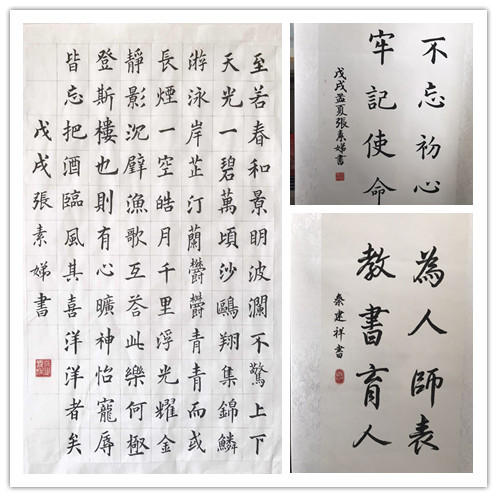 至若春和景明波瀾不驚上下
天光一碧萬頃沙鷗翔集錦鱗
游泳岸芷汀蘭鬱鬱青青而或
長煙一空皓月千里浮光耀金
靜影沉璧漁歌互荅此樂何極
登斯樓也則有心曠神怡寵辱
皆忘把酒臨風其喜洋洋者矣
戊戌張素娣書
不忘初心
牢記使命
戊戌孟夏張素娣書
為人師表
教書育人
秦建祥書